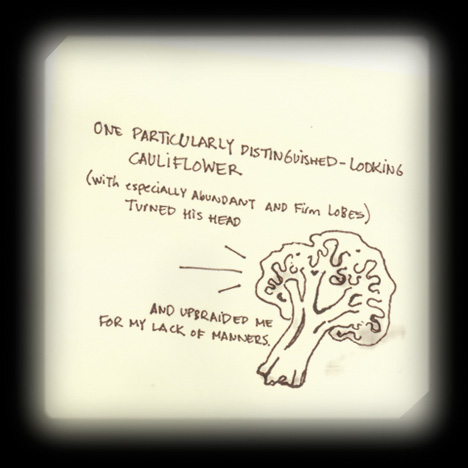 ONE PARTICULARLY DISTINGUISHED-LOOKING
CAULIFLOWER
(with especially ABUNDANT AND FIRM LOBES)
TURNED HIS HEAD
AND UPBRAIDED ME
FOR MY LACK OF MANNERS.